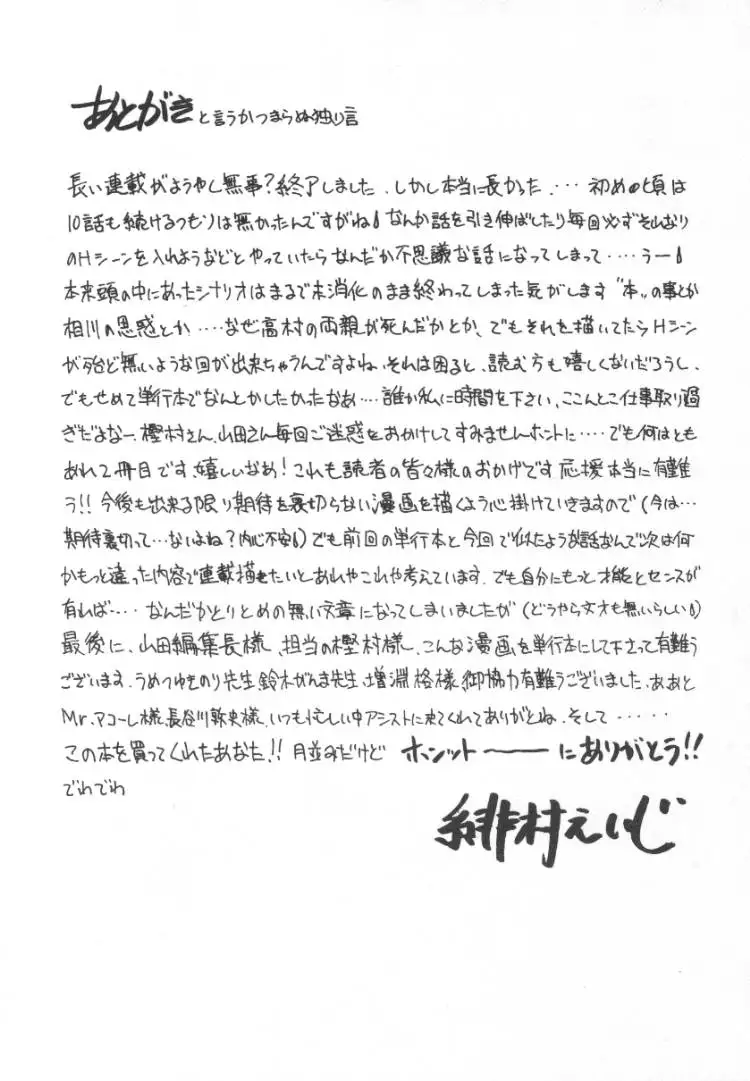 あとがきと言うかつまらぬ独り言
長い連載がようやく無事?終了しました、しかし本当に長かった、… 初めの頃は
10話も続けるつもりは無かったんですがね なんか話を引き伸ばしたり毎回必ずそれなり
のHシーンを入れようなどとやっていたらなんだか不思議な話になってしまって‥‥うー
本来頭の中にあったシナリオはまるで未消化のまま終わってしまった気がします “本„の事とか
相川の思惑とか‥‥なぜ高村の両親が死んだかとか、でもそれを描いてたらHシーン
が殆ど無いような回が出来ちゃうんですよね、それは困ると、読む方も嬉しくないだろうし、
でもせめて単行本でなんとかしたかったなあ‥‥誰か私に時間を下さい、ここんとこ仕事取り過
ぎだよなー、樫村さん、山田さん毎回ご迷惑をおかけしてすみませんホントに‥‥でも何はとも
あれ2冊目です、嬉しいなぁ!これも読者の皆々様のおかげです 応援本当に有難
う!!今後も出来る限り期待を裏切らない漫画を描くよう心掛けていきますので(今は…
期待裏切って…ないよね?内心不安)でも前回の単行本と今回で似たような話なんで次は何
かもっと違った内容で連載描きたいとあれやこれや考えています、でも自分にもっと才能とセンスが
有れば‥‥ なんだかとりとめの無い文章になってしまいましたが(どうやら文才も無いらしい)
最後に、山田編集長様、担当の樫村様、こんな漫画を単行本にして下さって有難う
ございます、うめつゆきのり先生 鈴木がんま先生、増淵格様、御協力有難うございました、ああと
Mr.アコーレ様、長谷川幹史様、いつも忙しい中アシストに来てくれてありがとね、そして‥‥‥
この本を買ってくれたあなた!!月並みだけど ホンット――にありがとう!!
でわでわ
緋村えいじ